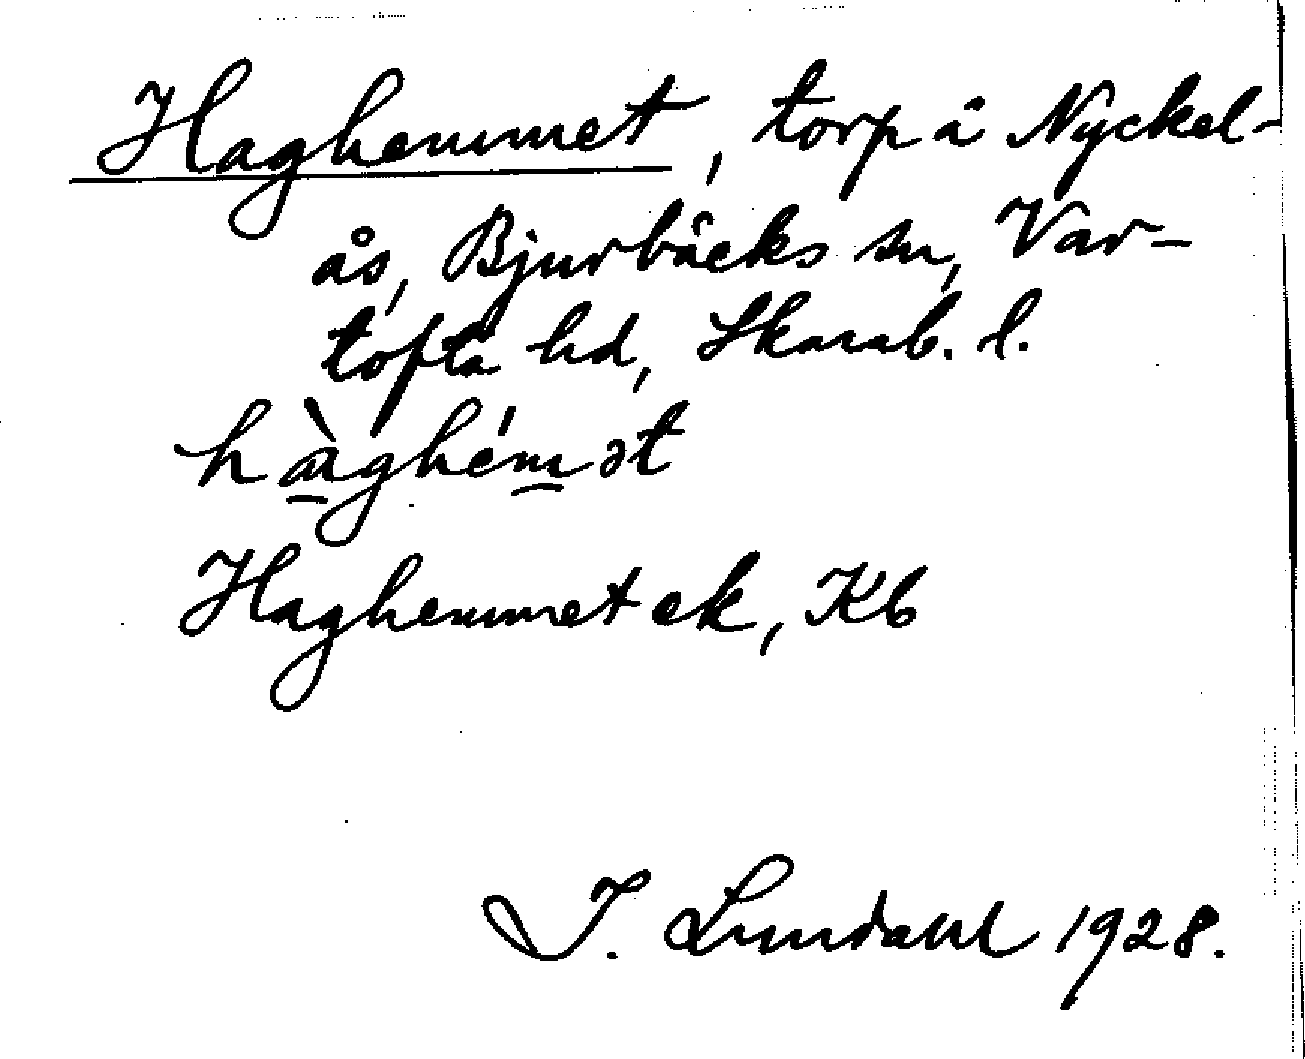 Haghemmet, torp å Nyckel-
ås, Bjurbäcks sn, Var-
tofta hd, Skarab. l.
hàghémət
Haghemmet ek, Kb
I. Lundahl 1928.